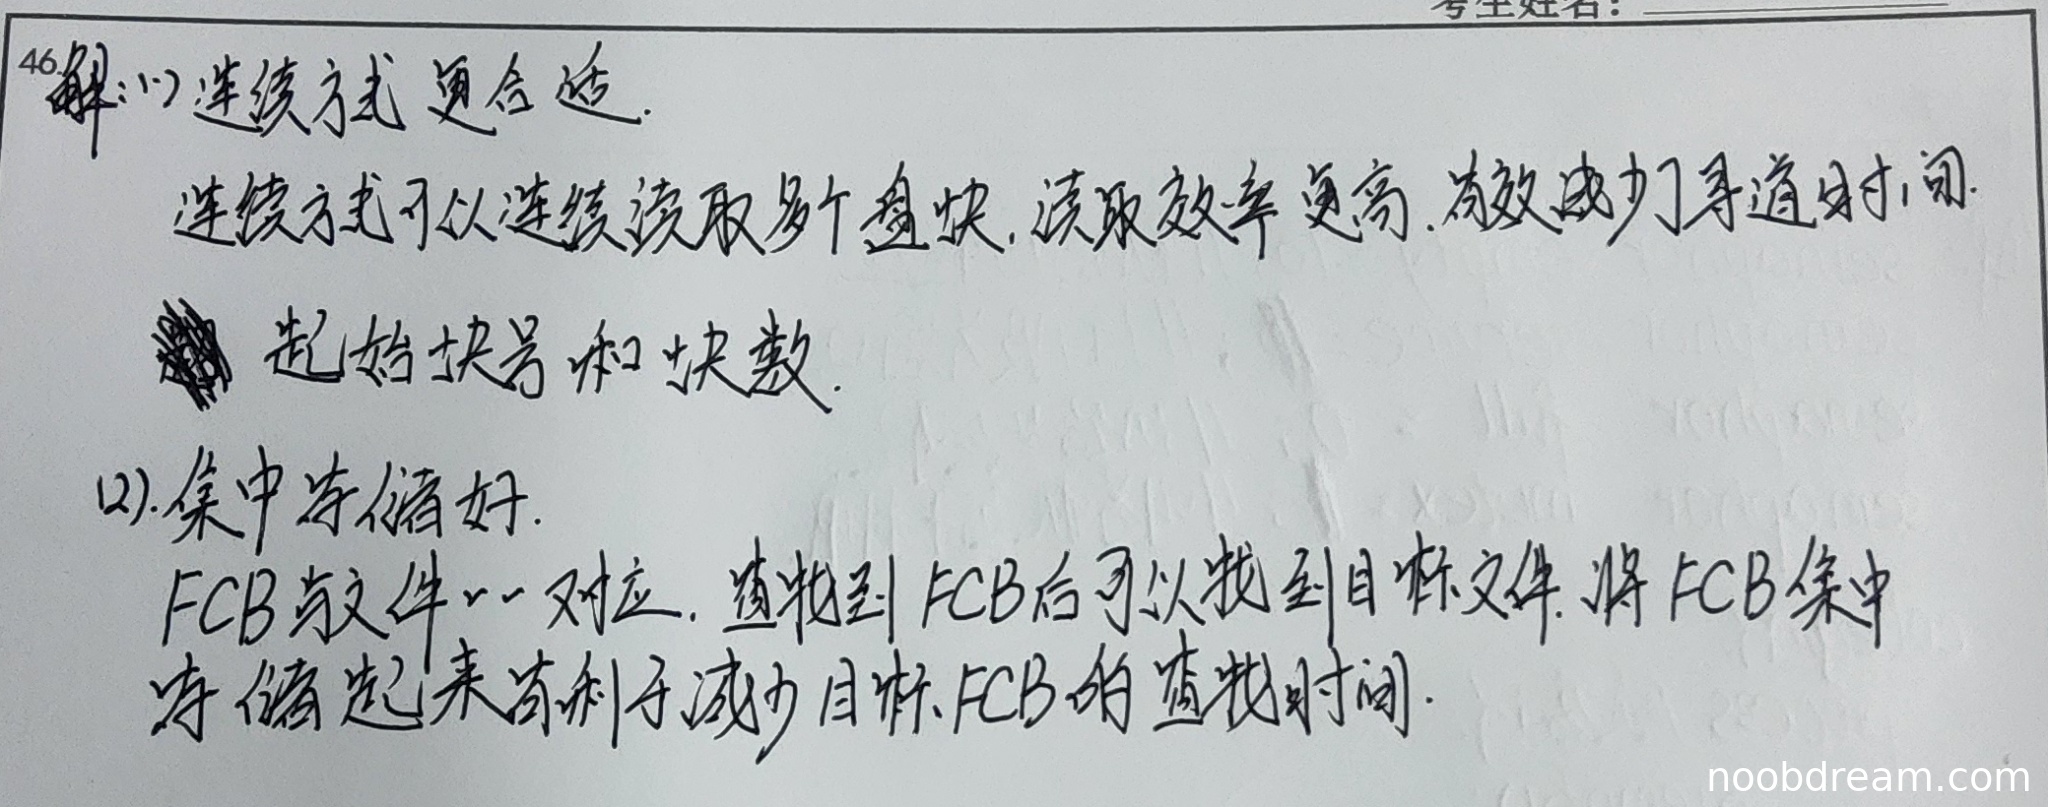 考生姓名：
46.解：(1) 连续方式更合适.
连续方式可以连续读取多个盘快, 读取效率更高. 有效减少了寻道时间.
起始块号和块数.
(2). 集中存储好.
FCB与文件一一对应. 查找到FCB后可以找到目标文件. 将FCB集中
存储起来有利于减少目标FCB的查找时间.
noobdream.com